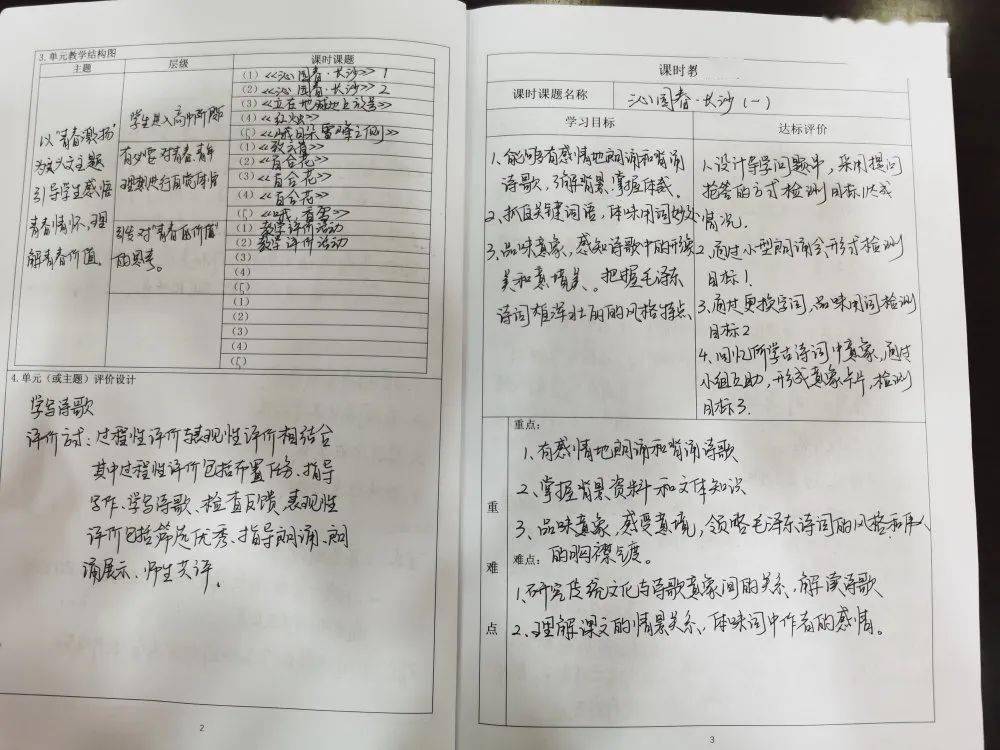 3.单元教学结构图
主题 层级 课时课题
以“青春激扬”
为人文主题
引导学生感悟
青春情怀、理
解青春价值。
学生进入高中阶段
有必要对青春、青年
理想进行自觉体悟
引发对“青春的价值”
的思考。
(1)《沁园春·长沙》1
(2)《沁园春·长沙》2
(3)《立在地球边上放号》
(4)《红烛》
(5)《峨日朵雪峰之侧》
(1)《致云雀》
(2)《百合花》
(3)《百合花》
(4)《百合花》
(5)《哦,香雪》
(1) 教学评价活动
(2) 教学评价活动
(3)
(4)
(5)
(1)
(2)
(3)
(4)
(5)
4.单元(或主题)评价设计
学写诗歌
评价方式:过程性评价与表现性评价相结合
其中过程性评价包括布置任务、指导
写作、学写诗歌、检查反馈,表现性
评价包括筛选优秀、指导朗诵、朗
诵展示、师生共评。
2
课时教
课时课题名称 沁园春·长沙(一)
学习目标 达标评价
1、能够有感情地朗诵和背诵
诗歌,了解背景、掌握体裁。
2、抓住关键词语,体味用词妙处
3、品味意象,感知诗歌中的形象
美和意境美。把握毛泽东
诗词雄浑壮丽的风格特点
1.设计导学问题串,采用提问
抢答的方式检测目标达成
情况。
2.通过小型朗诵会形式检测
目标1.
3.通过更换字词,品味用词检测
目标2
4.回忆所学古诗词中意象,通过
小组互助,形成意象卡片,检测
目标3.
重难点
重点:
1、有感情地朗诵和背诵诗歌
2、掌握背景资料和文体知识
3、品味意象,感受意境,领略毛泽东诗词的风格和伟人
的胸襟气度。
难点:
1、研究传统文化与诗歌意象间的关系,解读诗歌
2、理解课文的情景关系,体味词中作者的感情。
3